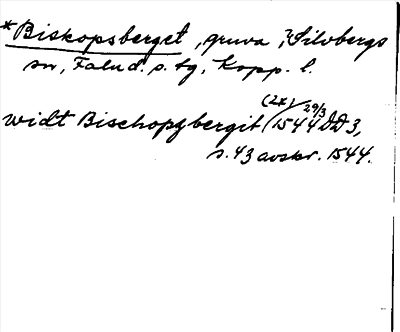 *Biskopsberget, gruva, ? Silvbergs
sn, Falu d. s. tg, Kopp. l.
(2x) 29/3
widt Bischopzbergit (1544 DD 3,
s. 43 avskr. 1544.